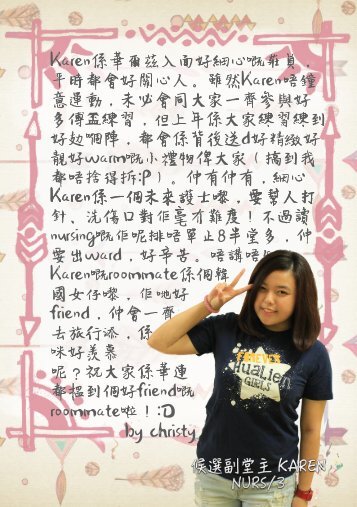 Karen係華爾茲入面好細心嘅莊員，
平時都會好關心人。雖然Karen唔鐘
意運動，未必會同大家一齊參與好
多傳盃練習，但上年係大家練習練到
好攰嗰陣，都會係背後送d好精緻好
靚好warm嘅小禮物俾大家（搞到我
都唔捨得拆:P）。仲有仲有，細心
Karen係一個未來護士嚟，要幫人打
針、洗傷口對佢毫冇難度！不過讀
nursing嘅佢呢排唔單止8半堂多，仲
要出ward，好辛苦。唔講唔知
Karen嘅roommate係個韓
國女仔嚟，佢哋好
friend，仲會一齊
去旅行添，係
咪好羨慕
呢？祝大家係華運
都搵到個好friend嘅
roommate啦！:D
by christy
FOREVER
HuaLien
GIRLS
候選副堂主 KAREN
NURS/3